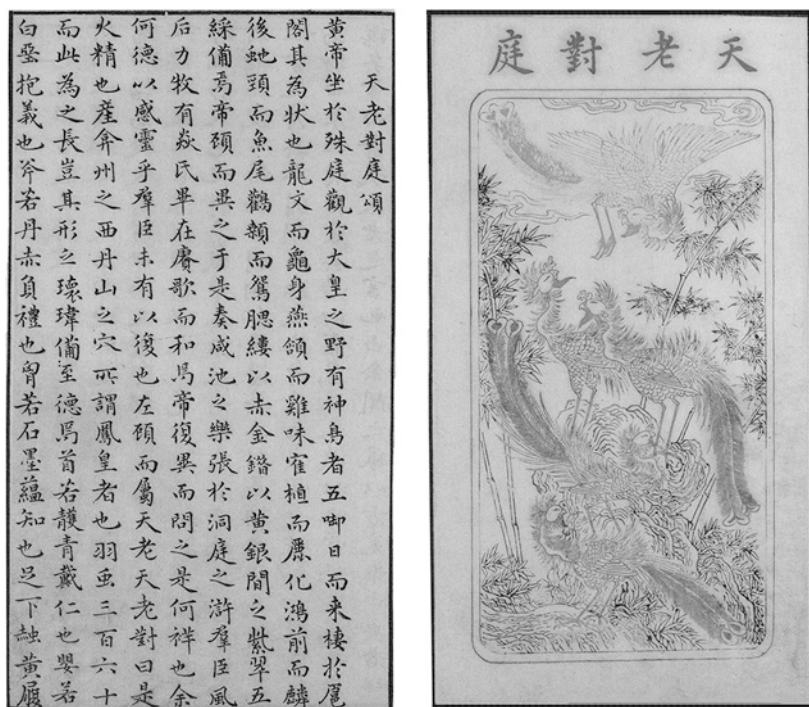 天老對庭
天老對庭頌
黃帝坐於殊庭觀於大皇之野有神鳥者五啣日而来棲於扈
閣其為狀也龍文而龜身燕頷而雞咮寉植而麃化鴻前而麟
後虵頸而魚尾鸛顙而鴛腮縷以赤金鍇以黄銀間之紫翠五
綵備焉帝頋而異之于是奏咸池之樂張於洞庭之滸羣臣風
后力牧有焱氏畢在賡歌而和焉帝復異而問之是何祥也余
何德以感靈乎羣臣未有以復也左頋而屬天老天老對曰是
火精也産弇州之西丹山之穴所謂鳳皇者也羽䖝三百六十
而此為之長豈其形之瓌瑋備至德焉首若䕶青戴仁也嬰若
白堊抱義也斧若丹赤負禮也胷若石墨蘊知也足下黄履